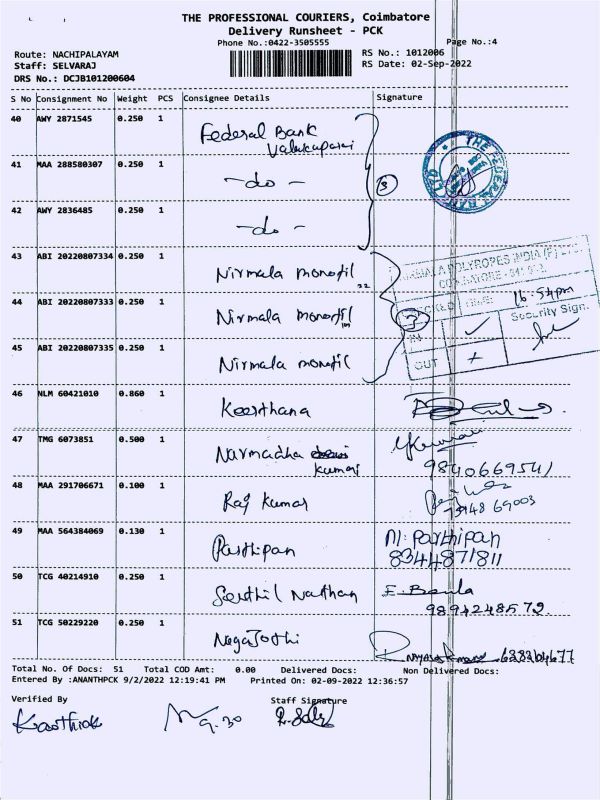 THE PROFESSIONAL COURIERS, Coimbatore
Delivery Runsheet - PCK
Phone No.:0422-3505555 Page No.:4
Route: NACHIPALAYAM RS No.: 1012006
Staff: SELVARAJ RS Date: 02-Sep-2022
DRS No.: DCJB101200604
S No Consignment No Weight PCS Consignee Details Signature
40 AWY 2871545 0.250 1 Federal Bank
41 MAA 288580307 0.250 1 -do- 3
42 AWY 2836485 0.250 1 -do-
THE FEDERAL BANK LTD
43 ABI 20220807334 0.250 1 Nirmala monofil
POLYROPES INDIA (P)
COIMBATORE
TIME: 16:54pm
44 ABI 20220807333 0.250 1 Nirmala monofil 3
IN ✓ Security Sign.
45 ABI 20220807335 0.250 1 Nirmala monofil
OUT
46 NLM 60421010 0.860 1 Keerthana
47 TMG 6073851 0.500 1 Narmadha
kumar 9840669541
48 MAA 291706671 0.100 1 Raj kumar
69003
49 MAA 564384069 0.130 1 Parthipan M. Parthipan
8344871811
50 TCG 40214910 0.250 1 Senthil Nathan
9894248572
51 TCG 50229220 0.250 1 NagaJothi
Total No. Of Docs: 51 Total COD Amt: 0.00 Delivered Docs: Non Delivered Docs:
Entered By :ANANTHPCK 9/2/2022 12:19:41 PM Printed On: 02-09-2022 12:36:57
Verified By Staff Signature
Karthick 9.30